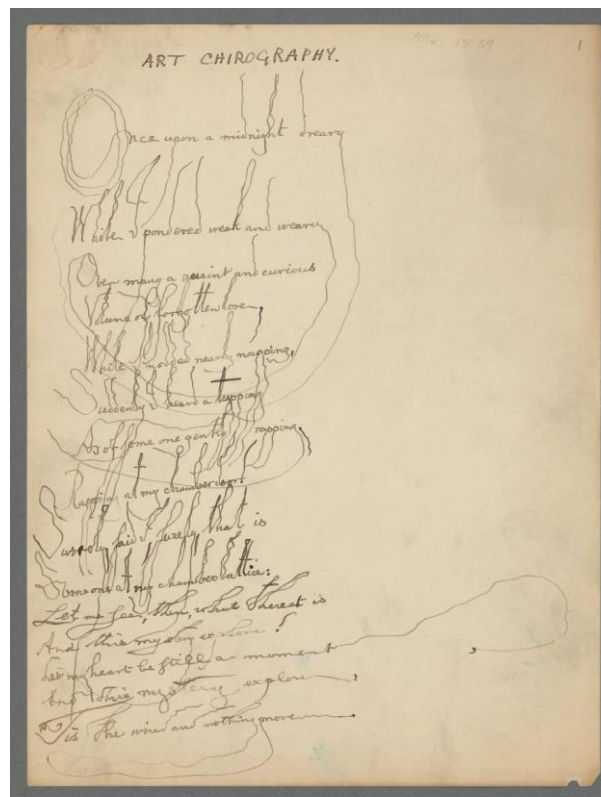 ART CHIROGRAPHY.
1
Once upon a midnight dreary
While I pondered weak and weary
Over many a quaint and curious
Volume of forgotten lore,
While I nodded nearly napping,
Suddenly I heard a tapping
As of some one gently rapping,
Rapping at my chamber door
Surely, said I, surely, that is
Someone at my chamber lattice:
Let me see, then, what thereat is
And this mystery explore!
Let my heart be still a moment,
And this mystery explore,
Tis the wind and nothing more